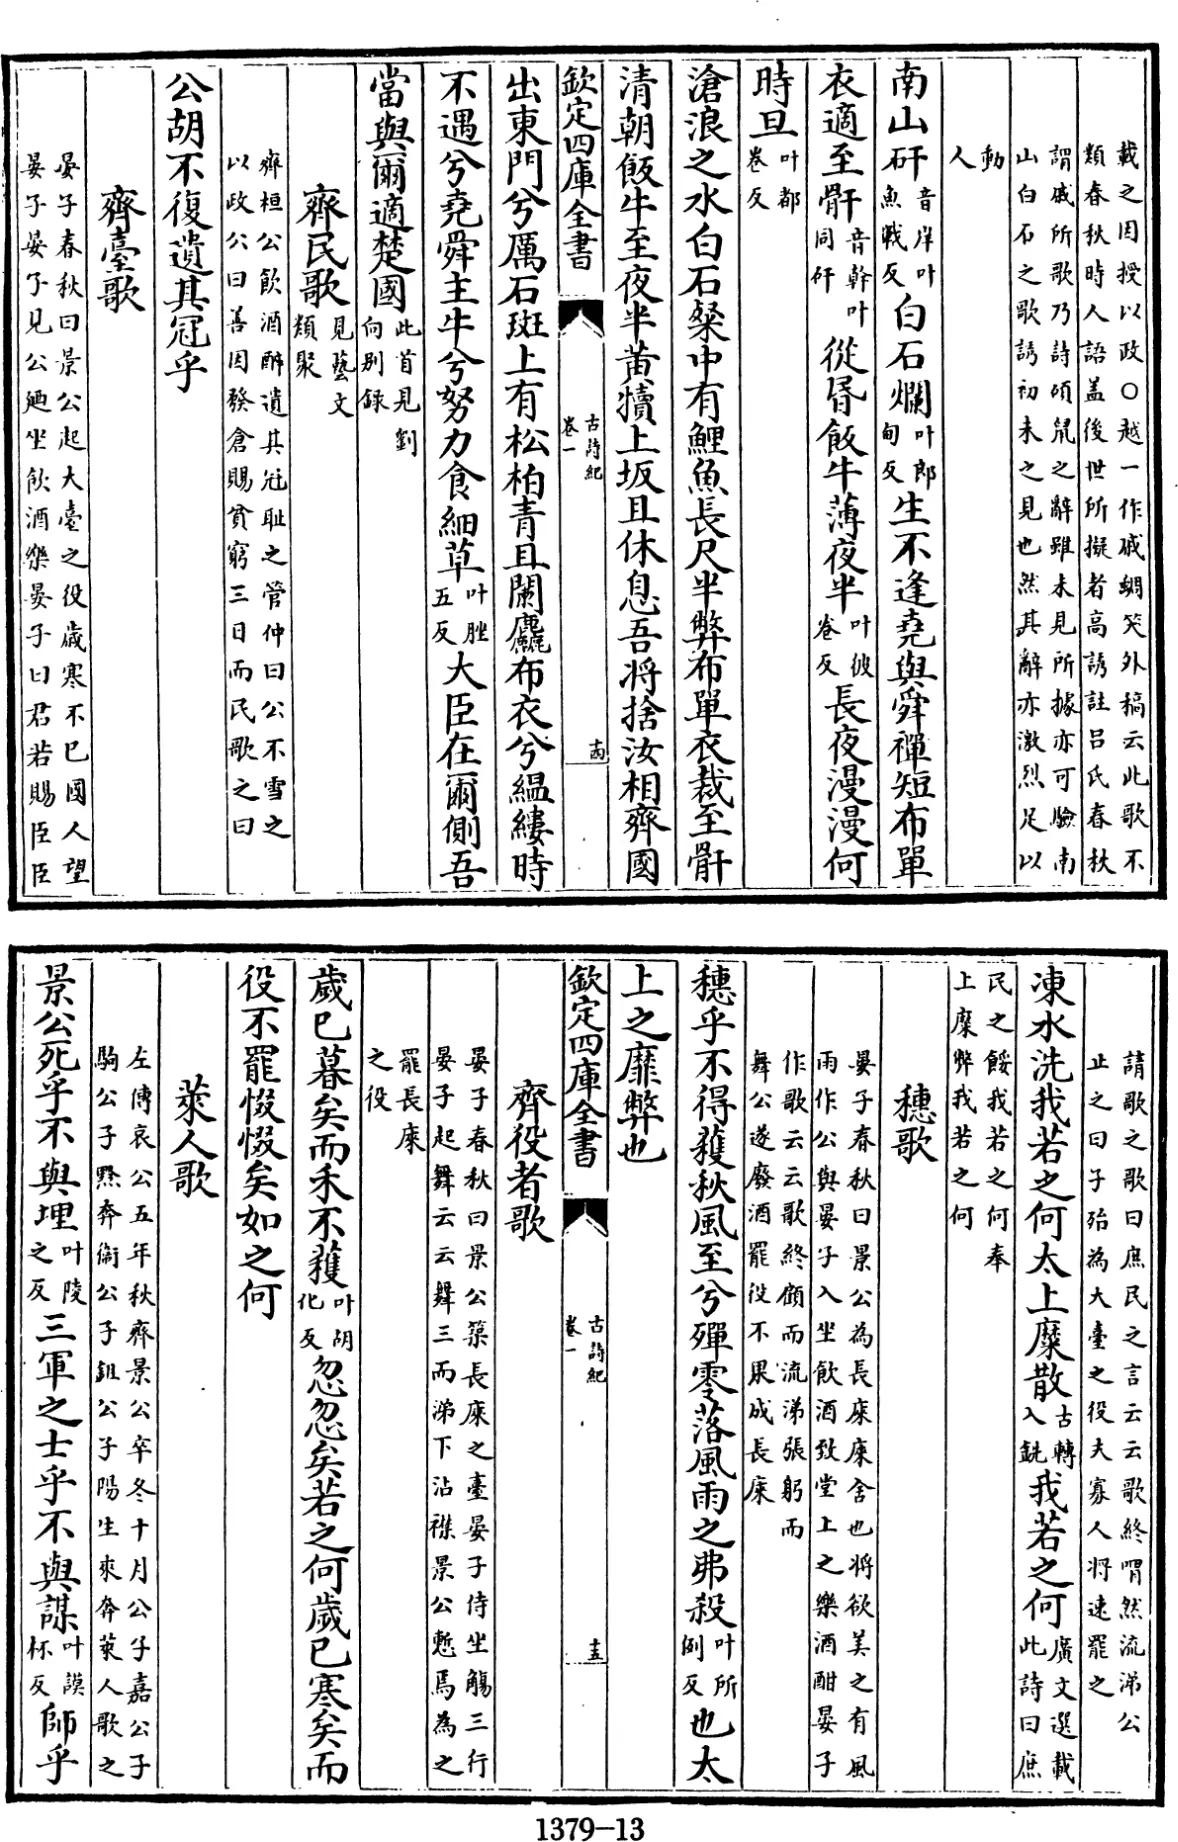 載之因授以政○越一作戚蜩笑外稿云此歌不
類春秋時人語蓋後世所擬者高誘註吕氏春秋
謂戚所歌乃詩碩鼠之辭雖未見所據亦可驗南
山白石之歌誘初未之見也然其辭亦激烈足以
動
人
南山矸音岸叶魚戰反白石爛叶郎甸反生不逢堯與舜禪短布單
衣適至骭音幹叶同矸從昏飯牛薄夜半叶彼卷反長夜漫漫何
時旦叶都卷反
滄浪之水白石粲中有鯉魚長尺半弊布單衣裁至骭
清朝飯牛至夜半黄犢上坂且休息吾將捨汝相齊國
欽定四庫全書
古詩紀
卷一
十四
出東門兮厲石班上有松柏青且闌麤布衣兮縕縷時
不遇兮堯舜主牛兮努力食細草叶脞五反大臣在爾側吾
當與爾適楚國此首見劉向别録
齊民歌見藝文類聚
齊桓公飲酒醉遺其冠耻之管仲曰公不雪之
以政公曰善因發倉賜貧窮三日而民歌之曰
公胡不復遺其冠乎
齊臺歌
晏子春秋曰景公起大臺之役歲寒不已國人望
晏子晏子見公廼坐飲酒樂晏子曰君若賜臣臣
請歌之歌曰庶民之言云云歌終喟然流涕公
止之曰子殆為大臺之役夫寡人將速罷之
凍水洗我若之何太上糜散古轉入銑我若之何廣文選載此詩曰庶
民之餒我若之何奉
上糜弊我若之何
穗歌
晏子春秋曰景公為長庲庲舍也將欲美之有風
雨作公與晏子入坐飲酒致堂上之樂酒酣晏子
作歌云云歌終顧而流涕張躬而
舞公遂廢酒罷役不果成長庲
穗乎不得穫秋風至兮殫零落風雨之弗殺叶所例反也太
上之靡弊也
欽定四庫全書
古詩紀
卷一
十五
齊役者歌
晏子春秋曰景公築長庲之臺晏子侍坐觴三行
晏子起舞云云舞三而涕下沾襟景公慙焉為之
罷長庲
之役
歲已暮矣而禾不穫叶胡化反忽忽矣若之何歲已寒矣而
役不罷惙惙矣如之何
萊人歌
左傳哀公五年秋齊景公卒冬十月公子嘉公子
駒公子黔奔衞公子鉏公子陽生來奔萊人歌之
景公死乎不與埋叶陵之反三軍之士乎不與謀叶謨杯反師乎
1379-13